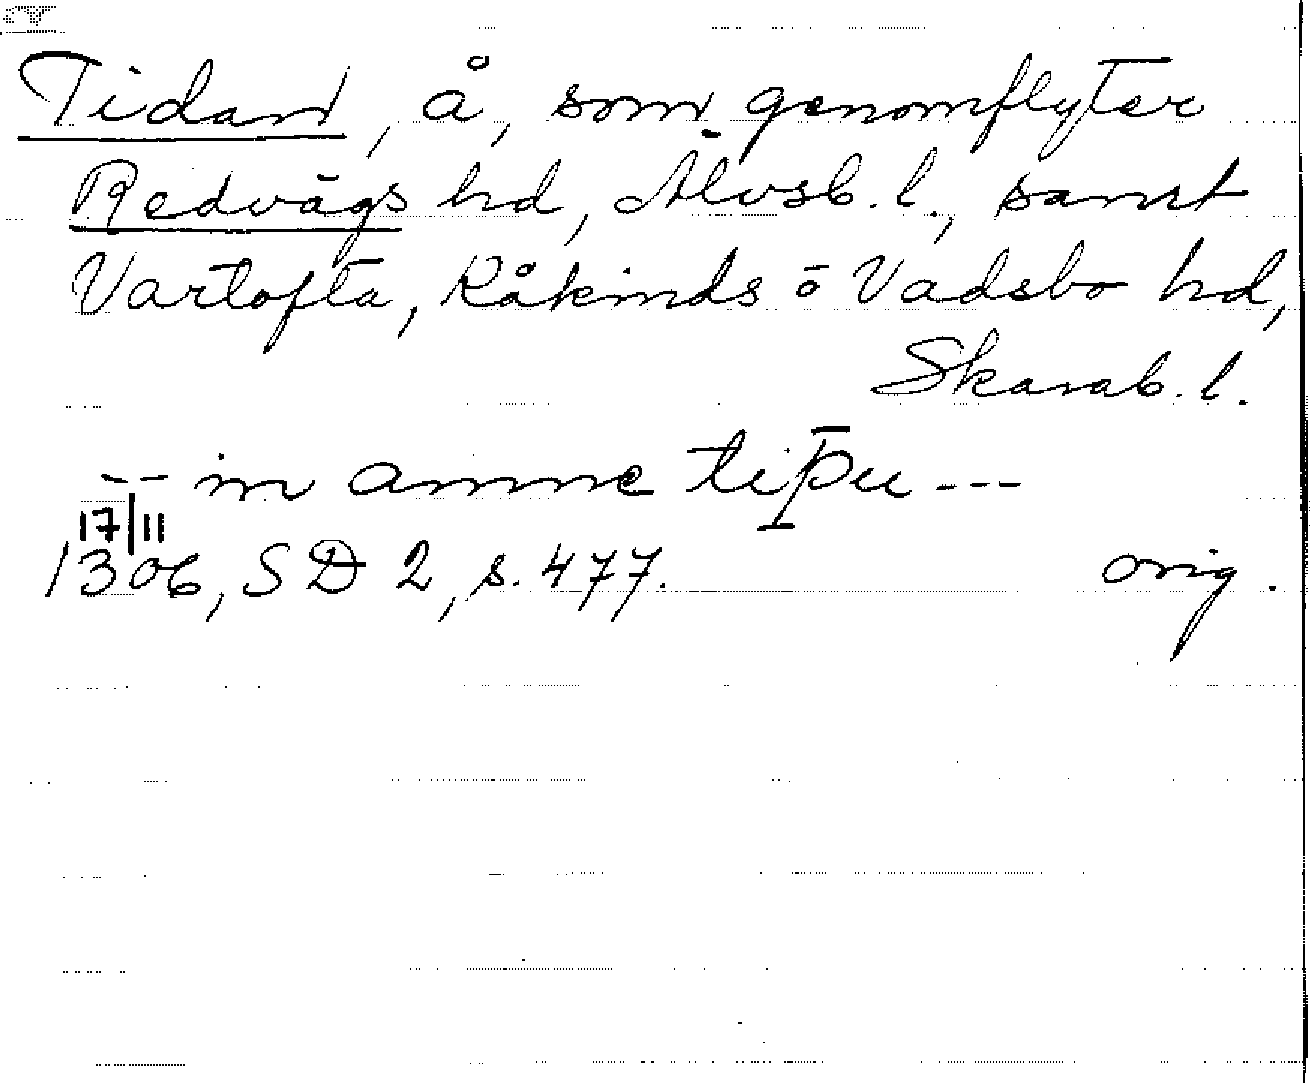 Tidan, å, som genomflyter
Redvägs hd, Älvsb. l., samt
Vartofta, Kåkinds o Vadsbo hd,
Skarab. l.
-- in amne tipu ---
17/11
1306, SD 2, s. 477. orig.